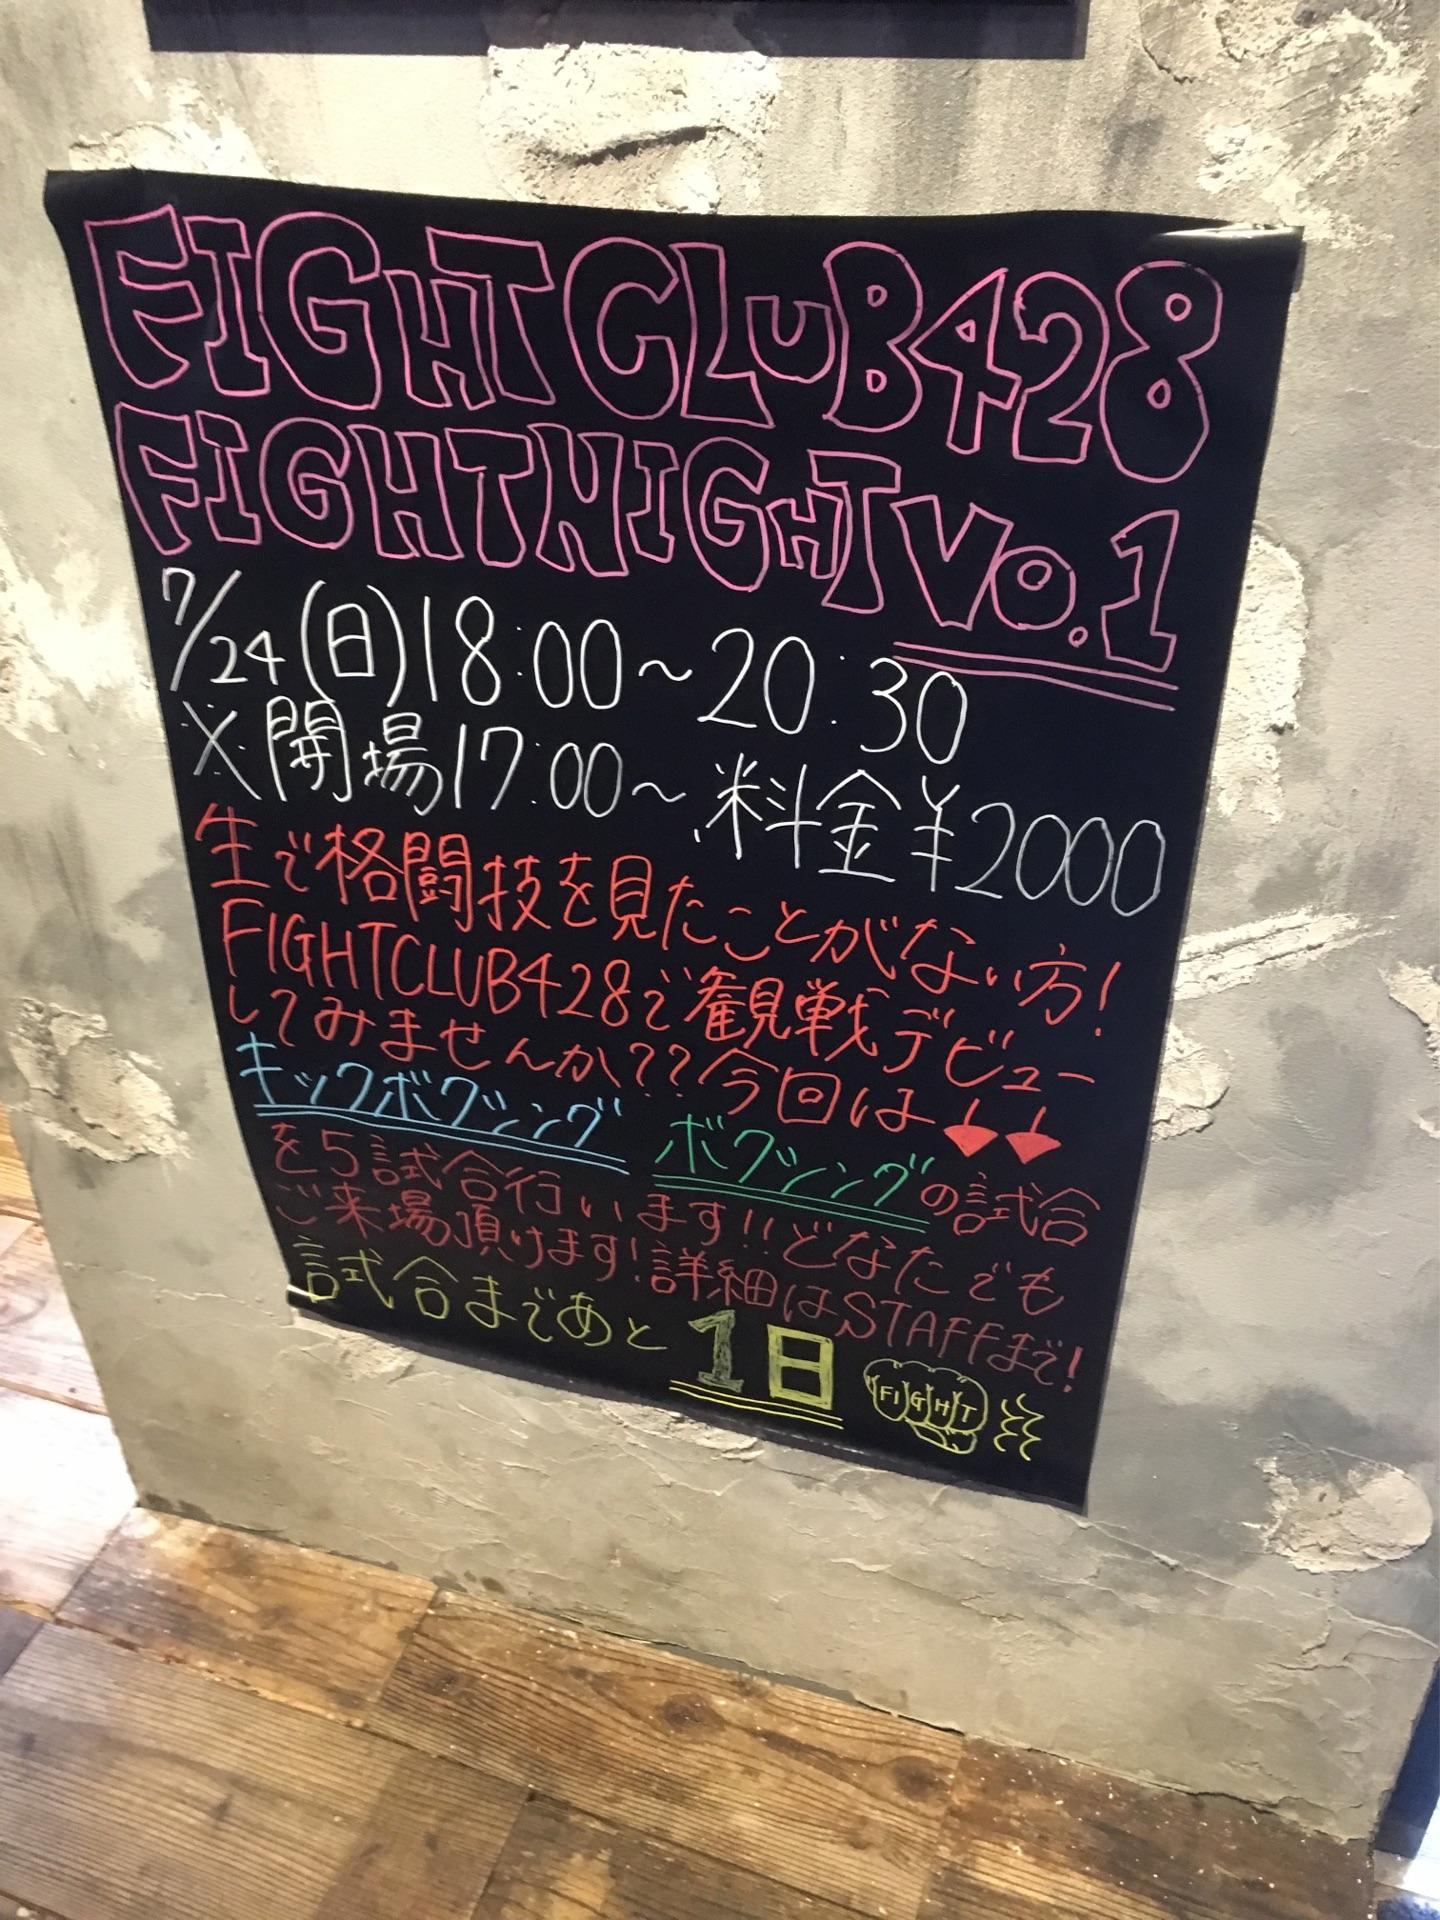 FIGHT CLUB 428
FIGHT NIGHT VO.1
7/24(日)18:00~20:30
※開場17:00~料金¥2000
生で格闘技を見たことがない方!
FIGHTCLUB428で観戦デビュー
してみませんか??今回は
キックボクシング ボクシングの試合
を5試合行います!!どなたでも
ご来場頂けます!詳細はSTAFFまで!
試合まであと1日
FIGHT